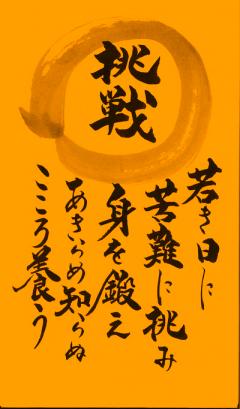 挑戦
若き日に
苦難に挑み
身を鍛え
あきらめ知らぬ
こころ養う